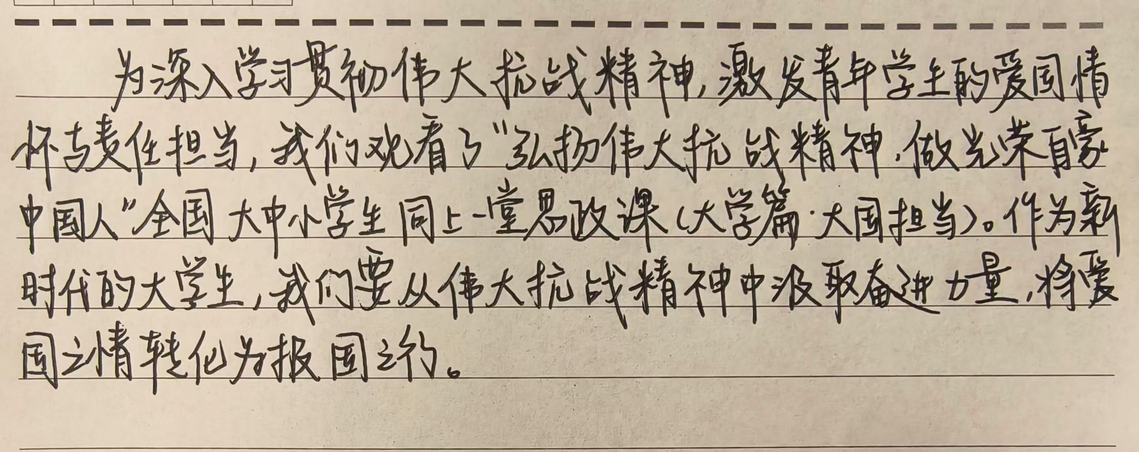 为深入学习贯彻伟大抗战精神,激发青年学生的爱国情
怀与责任担当,我们观看了“弘扬伟大抗战精神,做光荣自豪
中国人”全国大中小学生同上一堂思政课(大学篇·大国担当)。作为新
时代的大学生,我们要从伟大抗战精神中汲取奋进力量,将爱
国之情转化为报国之行。